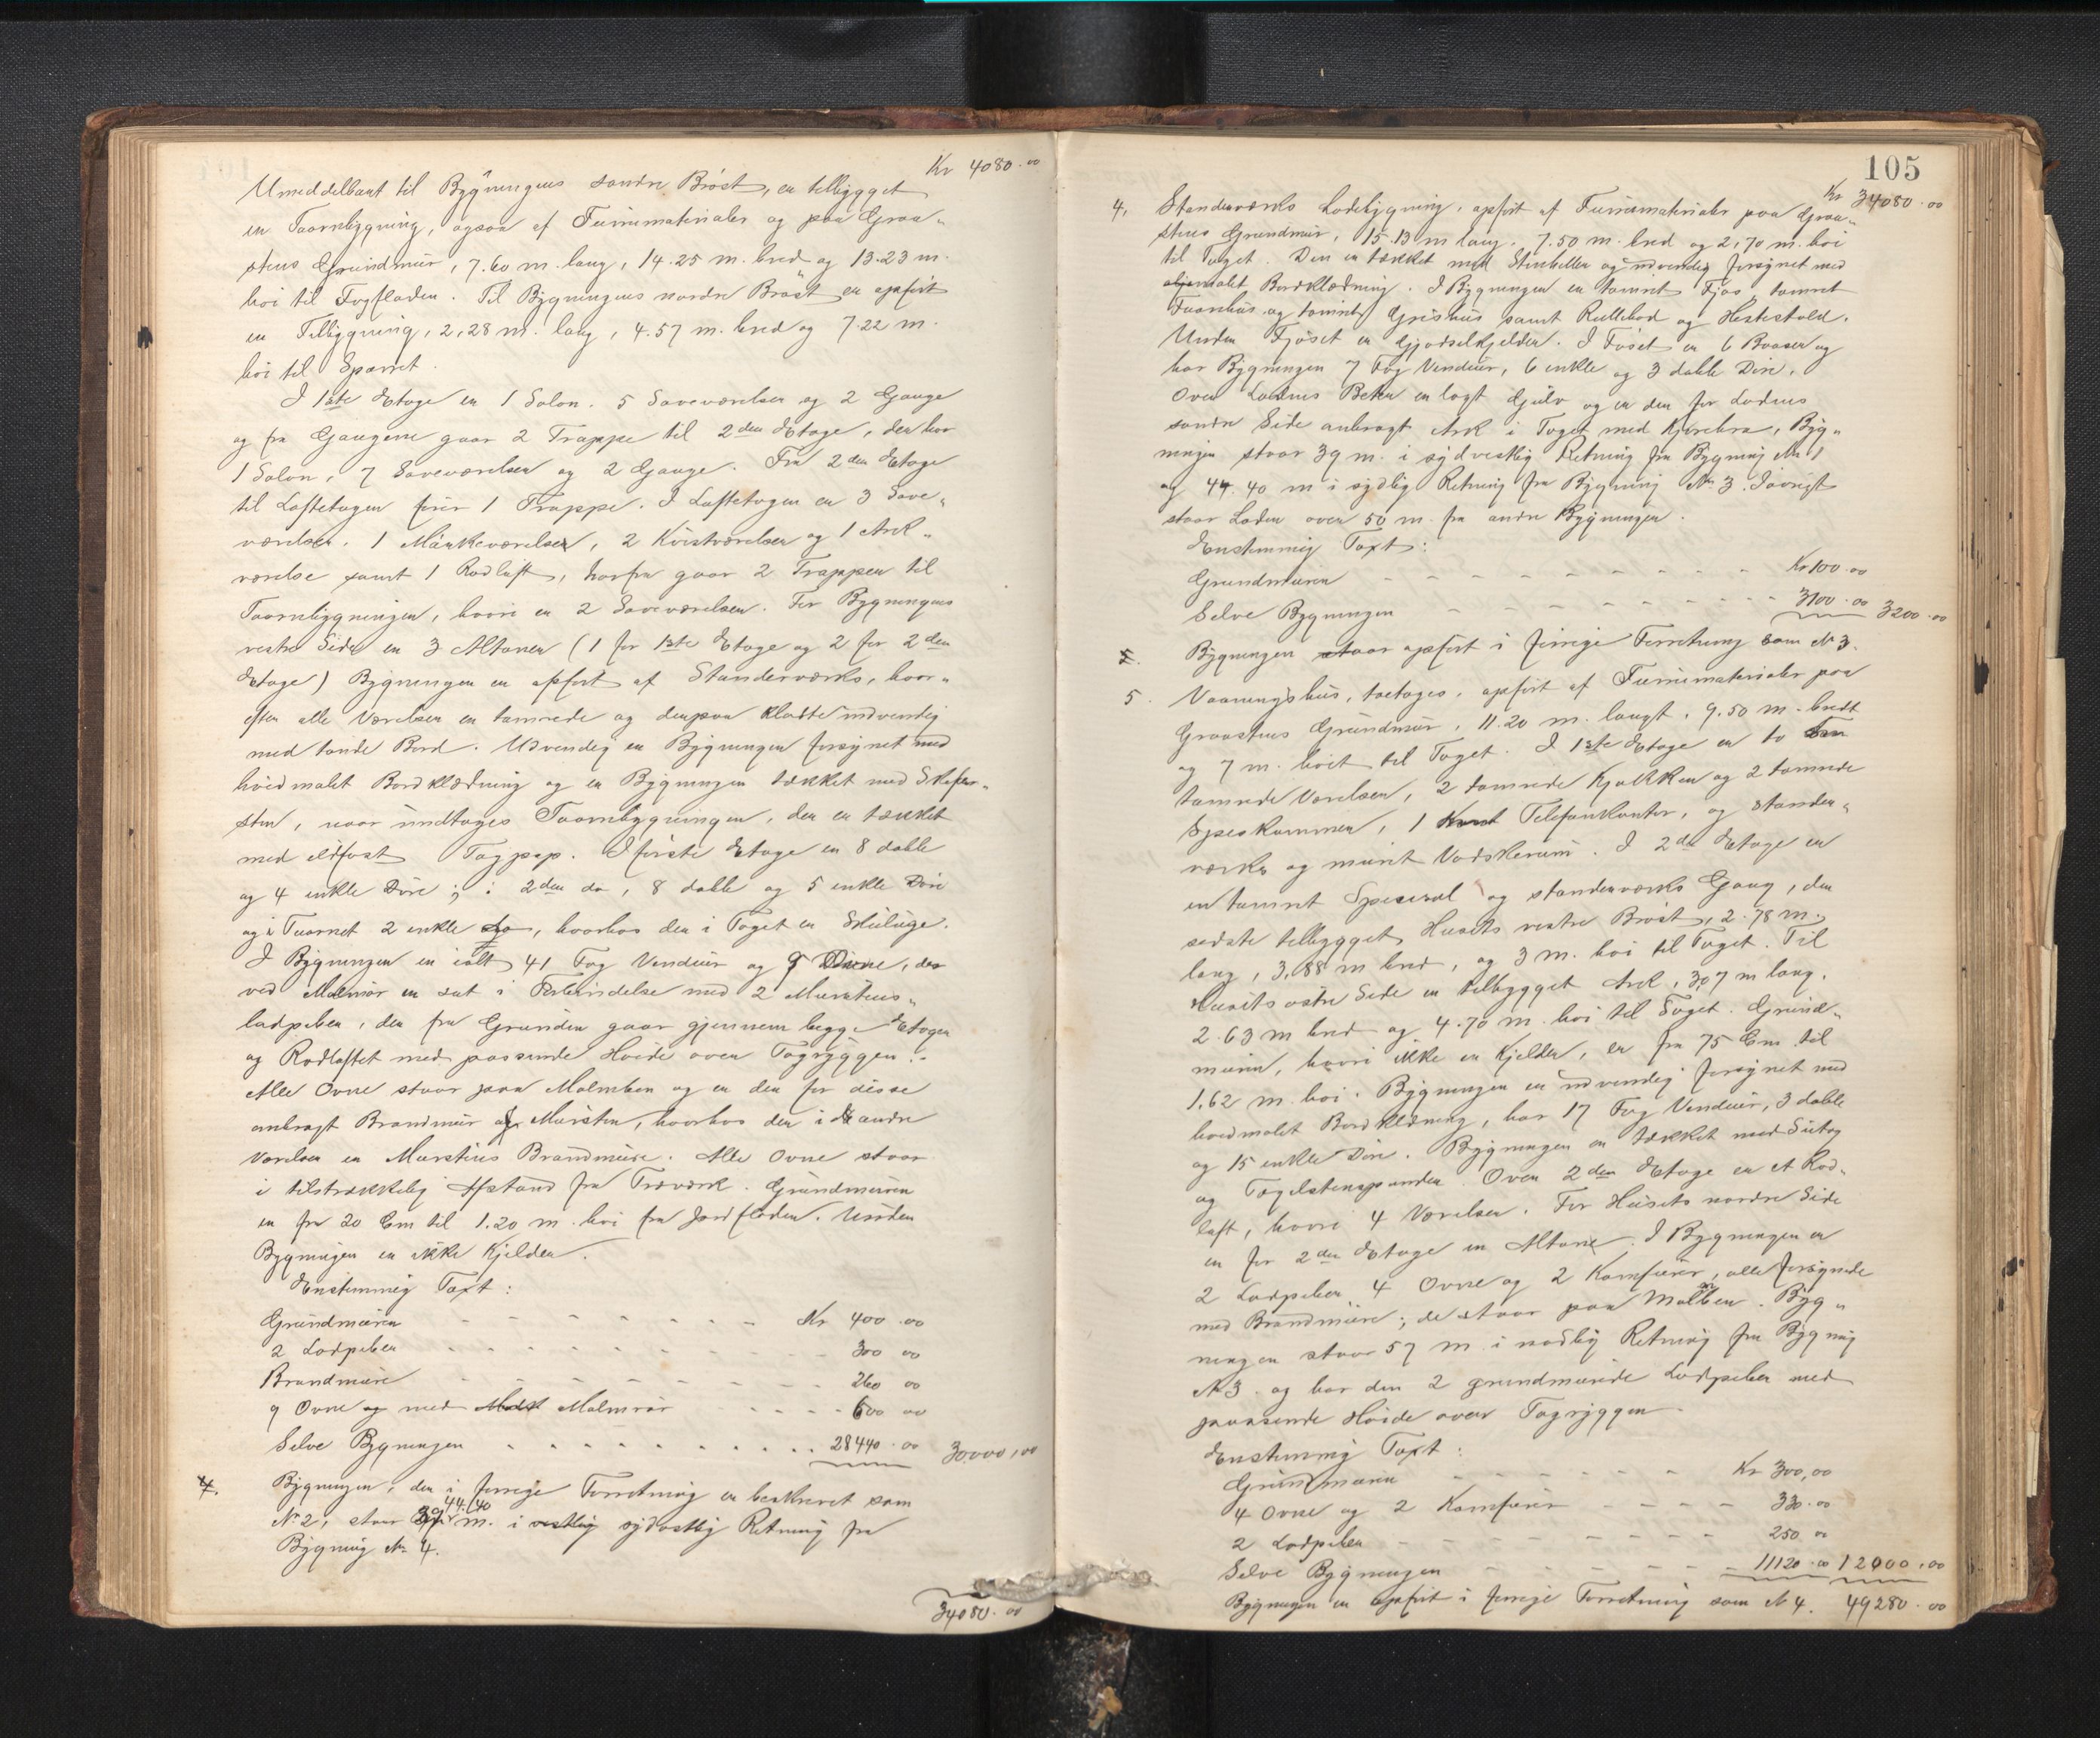 Kr 4080.00
Umeddelbart til Bygningens søndre Brøst, er tilbygget
en Taarnbygning, ogsaa af Furumaterialer og paa Graa-
stens Grundmur, 7.60 m. lang, 14.25 m. bred og 13.23 m.
høi til Tagfladen. Til Bygningens nordre Brøst er opført
en Tilbygning, 2,28 m. lang, 4.57 m. bred og 7.22 m.
høi til Sparret.
I 1ste Etage er 1 Salon. 5 Soveværelser og 2 Gange
og fra Gangene gaar 2 Trappe til 2den Etage, der har
1 Salon, 7 Soveværelser og 2 Gange. Fra 2den Etage
til Loftetagen fører 1 Trappe. I Loftetagen er 3 Sove-
værelser. 1 Mørkeværelser, 2 Kvistværelser og 1 Ark-
værelse samt 1 Rødloft, hvorfra gaar 2 Trapper til
Taarnbygningen, hvori er 2 Soveværelser. For Bygningens
vestre Side er 3 Altaner (1 for 1ste Etage og 2 for 2den
Etage) Bygningen er opført af Standerværks, hvor-
efter alle Værelser er tømrede og derpaa klædte indvendig
med tønde Bord. Udvendig er Bygningen forsynet med
hvidmalet Bordklædning og er Bygningen tækket med Skifer-
sten, naar undtages Taarnbygningen, der er tækket
med ildfast Tagpap. I første Etage er 8 doble
og 4 enkle Døre; i 2den do, 8 doble og 5 enkle Døre
og i Taarnet 2 enkle do, hvorhos der i Taget er Skiluge.
I Bygningen er ialt 41 Fag Vinduer og 9 Ovne, der
ved Malmrør er sat i Forbindelse med 2 Murstens-
ladpiber, der fra Grunden gaar gjennem begge Etager
og Rødloftet med passende Høide over Tagryggen.-
Alle Ovne staar paa Malmben og er der for disse
anbragt Brandmur af Mursten, hvorhos der i de andre
Værelser er Murstens Brandmure. Alle Ovne staar
i tilstrækkelig Afstand fra Træværk. Grundmuren
er fra 20 Cm til 1.20 m. høi fra Jordfladen. Under
Bygningen er ikke Kjelder.
Enstemmig Taxt:
Grundmuren - - - - - - - - Kr 400.00
2 Ladpiber - - - - - - - - 300 00
Brandmure - - - - - - - - 260 00
9 Ovne og med Malmrør - - - - - 600 00
Selve Bygningen . . . . . . . . . . 28440.00 30,000,00
4. Bygningen, der i forrige Forretning er beskrevet som
No 2, staar 44.40 m. i vestlig sydvestlig Retning fra
Bygning No 4.
34080.00
105
Kr 34080.00
4. Standerværks Ladebygning, opført af Furumaterialer paa Graa-
stens Grundmur, 15.13 m lang. 7.50 m. bred og 2,70 m. høi
til Taget. Den er tækket med Stenheller og udvendig forsynet med
oljemalet Bordklædning. I Bygningen er tømret Fjøs, tømret
Faarehus og tømret Grishus samt Rullebod og Hestestald.
Under Fjøset er Gjødselkjelder. I Fjøset er 6 Baaser og
har Bygningen 7 Fag Vinduer, 6 enkle og 3 doble Døre.
Over Ladens Beter er lagt Gulv og er der for Ladens
søndre Side anbragt Ark i Taget med Kjørebro, Byg-
ningen staar 39 m. i sydvestlig Retning fra Bygning No 1
og 44.40 m i sydlig Retning fra Bygning No 3. Iøvrigt
staar Laden over 50 m. fra andre Bygninger.
Enstemmig Taxt:
Grundmuren - - - - - - - - - Kr 100.00
Selve Bygningen - - - - - - - - - 3100.00 3200.00
5. Bygningen staar opført i forrige Forretning som No 3.
5. Vaaningshus, toetages, opført af Furumaterialer paa
Graastens Grundmur, 11.20 m. langt, 9.50 m. bredt
og 7 m. høit til Taget. I 1ste Etage er to
tømrede Værelser, 2 tømrede Kjøkken og 2 tømrede
Spiskammer, 1 Telefonkontor, og stander-
værks og muret Vadskerum. I 2de Etage er
en tømret Spisesal og standerværks Gang, den
sidste tilbygget Husets vestre Brøst, 2.78 m.
lang, 3,88 m bred, og 3 m. høi til Taget. Til
Husets østre Side er tilbygget Ark, 3,07 m lang.
2.63 m bred og 4.70 m. høi til Taget. Grund-
muren, hvori ikke er Kjelder, er fra 75 Cm til
1.62 m. høi. Bygningen er udvendig forsynet med
hvidmalet Bordklædning, har 17 Fag Vinduer, 3 doble
og 15 enkle Døre. Bygningen er tækket med Sutag
og Tagelstenspander. Over 2den Etage er et Rød-
loft, hvori 4 Værelser. For Husets nordre Side
er for 2den Etage en Altane. I Bygningen er
2 Ladpiber, 4 Ovne og 2 Komfurer, alle forsynede
med Brandmure; de staar paa Malmben. Byg-
ningen staar 57 m i nordlig Retning fra Bygning
No 3 og har den 2 grundmurede Ladpiber med
passende Høide over Tagryggen.
Enstemmig Taxt:
Grundmuren - - - - - - Kr 300,00
4 Ovne og 2 Komfurer - - - - 330.00
2 Ladpiber - - - - - - - - 250 00
Selve Bygningen - - - - - - 11120.00 12000,00
Bygningen er opført i forrige Forretning som No 4. 49280.00